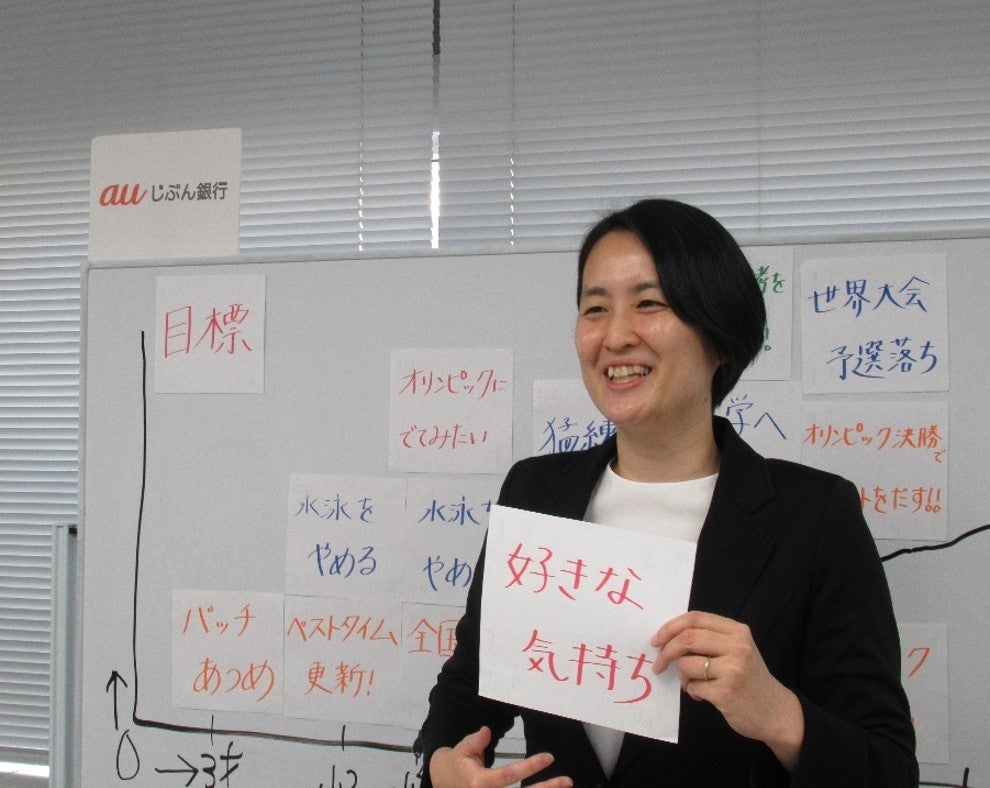 au じぶん銀行
目標
世界大会
予選落ち
オリンピックに
でてみたい
猛練
学へ
オリンピック決勝で
トをだす!!
水泳を
やめる
水泳を
やめ
好きな
気持ち
バッチ
あつめ
ベストタイム
更新!
全国
ク
0
→3才
小2